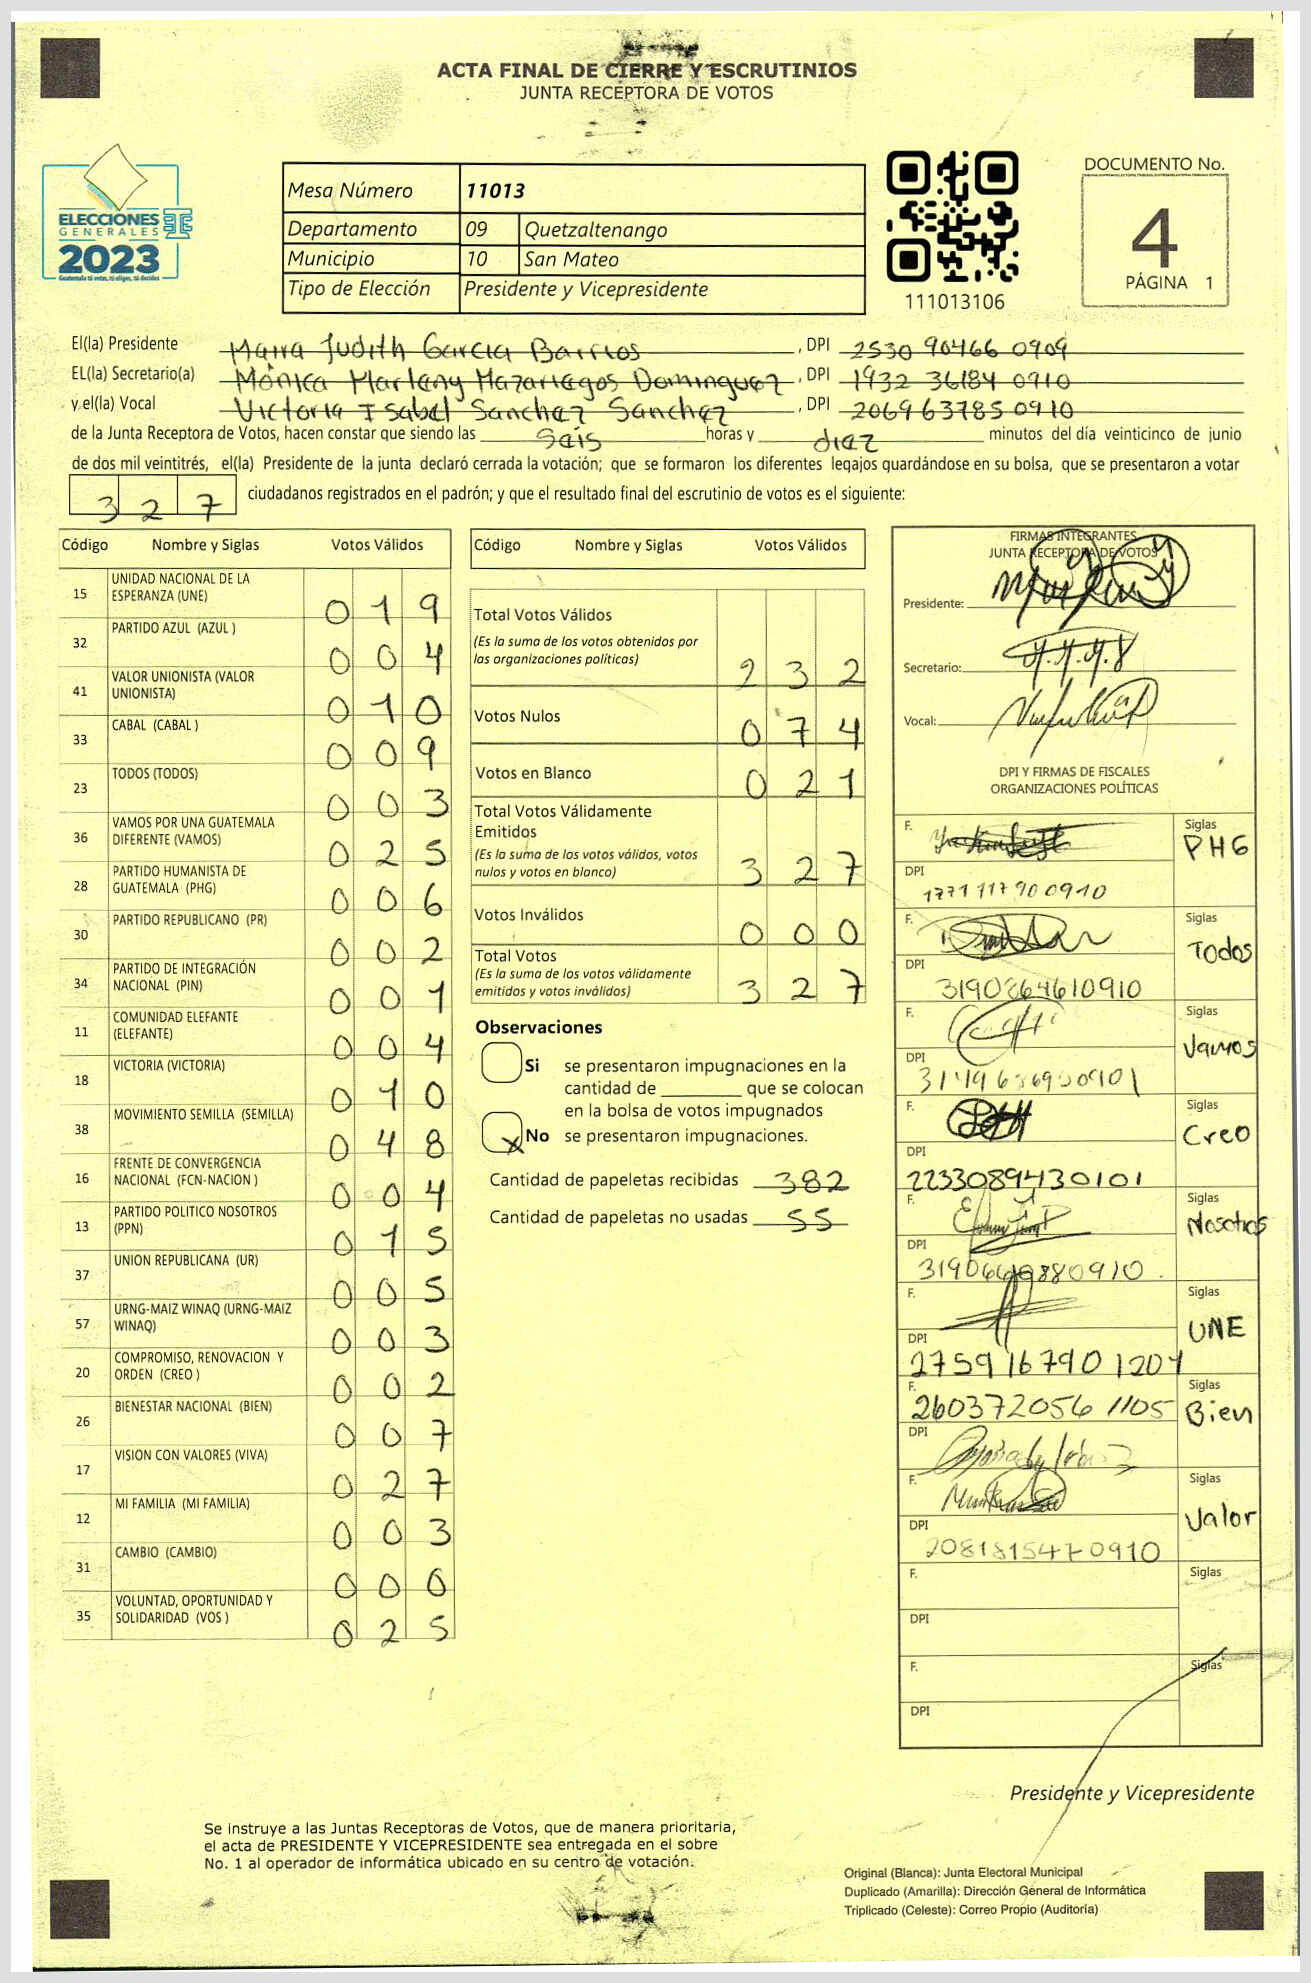 ACTA FINAL DE CIERRE Y ESCRUTINIOS
JUNTA RECEPTORA DE VOTOS
ELECCIONES
GENERALES
2023
Guatemala tú votas, tú eliges, tú decides
Mesa Número 11013
Departamento 09 Quetzaltenango
Municipio 10 San Mateo
Tipo de Elección Presidente y Vicepresidente
111013106
DOCUMENTO No.
4
PÁGINA 1
El(la) Presidente Maira Judith Garcia Barrios, DPI 2530 90466 0909
EL(la) Secretario(a) Mónica Marleny Mazariegos Dominguez, DPI 1932 36184 0910
y el(la) Vocal Victoria Isabel Sanchez Sanchez, DPI 2069 63785 0910
de la Junta Receptora de Votos, hacen constar que siendo las Seis horas y diez minutos del día veinticinco de junio
de dos mil veintitrés, el(la) Presidente de la junta declaró cerrada la votación; que se formaron los diferentes legajos guardándose en su bolsa, que se presentaron a votar
327 ciudadanos registrados en el padrón; y que el resultado final del escrutinio de votos es el siguiente:
Código Nombre y Siglas Votos Válidos
15 UNIDAD NACIONAL DE LA ESPERANZA (UNE) 019
32 PARTIDO AZUL (AZUL ) 004
41 VALOR UNIONISTA (VALOR UNIONISTA) 010
33 CABAL (CABAL ) 009
23 TODOS (TODOS) 003
36 VAMOS POR UNA GUATEMALA DIFERENTE (VAMOS) 025
28 PARTIDO HUMANISTA DE GUATEMALA (PHG) 006
30 PARTIDO REPUBLICANO (PR) 002
34 PARTIDO DE INTEGRACIÓN NACIONAL (PIN) 001
11 COMUNIDAD ELEFANTE (ELEFANTE) 004
18 VICTORIA (VICTORIA) 010
38 MOVIMIENTO SEMILLA (SEMILLA) 048
16 FRENTE DE CONVERGENCIA NACIONAL (FCN-NACION) 004
13 PARTIDO POLITICO NOSOTROS (PPN) 015
37 UNION REPUBLICANA (UR) 005
57 URNG-MAIZ WINAQ (URNG-MAIZ WINAQ) 003
20 COMPROMISO, RENOVACION Y ORDEN (CREO ) 002
26 BIENESTAR NACIONAL (BIEN) 007
17 VISION CON VALORES (VIVA) 027
12 MI FAMILIA (MI FAMILIA) 003
31 CAMBIO (CAMBIO) 000
35 VOLUNTAD, OPORTUNIDAD Y SOLIDARIDAD (VOS ) 025
Código Nombre y Siglas Votos Válidos
Total Votos Válidos
(Es la suma de los votos obtenidos por
las organizaciones políticas) 232
Votos Nulos 074
Votos en Blanco 021
Total Votos Válidamente
Emitidos
(Es la suma de los votos válidos, votos
nulos y votos en blanco) 327
Votos Inválidos 000
Total Votos
(Es la suma de los votos válidamente
emitidos y votos inválidos) 327
Observaciones
Si se presentaron impugnaciones en la
cantidad de ________ que se colocan
en la bolsa de votos impugnados
x No se presentaron impugnaciones.
Cantidad de papeletas recibidas 382
Cantidad de papeletas no usadas 55
FIRMAS INTEGRANTES
JUNTA RECEPTORA DE VOTOS
Presidente:
Secretario:
Vocal:
DPI Y FIRMAS DE FISCALES
ORGANIZACIONES POLÍTICAS
F. Siglas PHG
DPI 1771 117900910
F. Siglas Todos
DPI 3190264610910
F. Siglas Vamos
DPI
F. Siglas Creo
DPI 2233089430101
F. Siglas Nosotros
DPI
F. Siglas UNE
DPI 2759167901201
F. 2603720561105 Siglas Bien
DPI
F. Siglas Valor
DPI 2081815470910
F. Siglas
DPI
F. Siglas
DPI
Presidente y Vicepresidente
Se instruye a las Juntas Receptoras de Votos, que de manera prioritaria,
el acta de PRESIDENTE Y VICEPRESIDENTE sea entregada en el sobre
No. 1 al operador de informática ubicado en su centro de votación.
Original (Blanca): Junta Electoral Municipal
Duplicado (Amarilla): Dirección General de Informática
Triplicado (Celeste): Correo Propio (Auditoría)